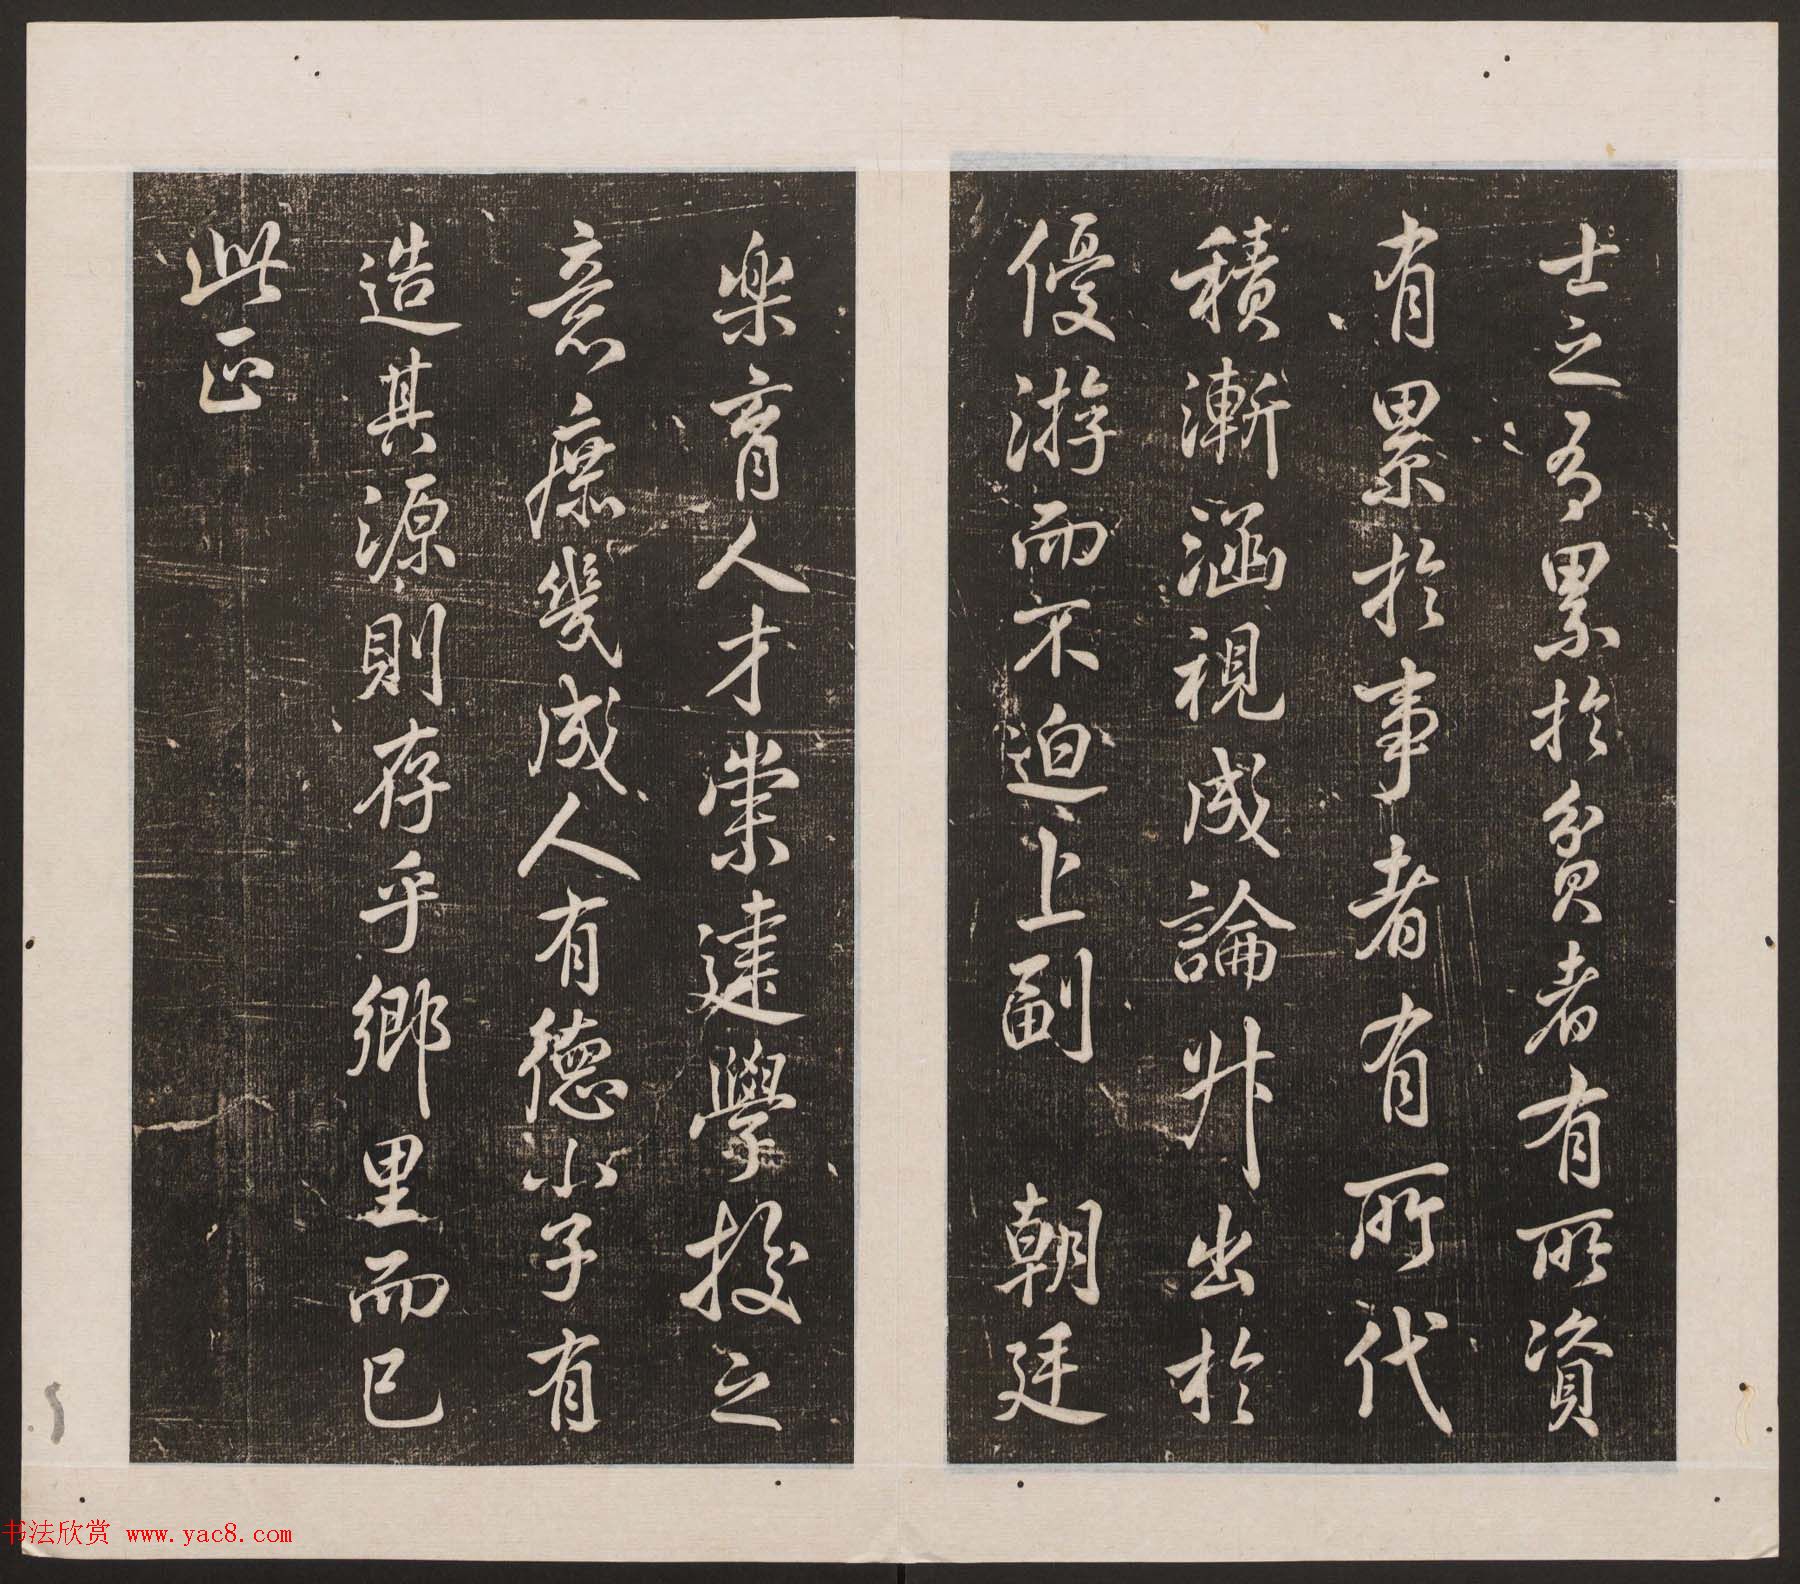 士之有累於貧者有所資
有累於事者有所代
積漸涵視成論升出於
優游而不迫上副 朝廷
樂育人才崇建學校之
意庶幾成人有德小子有
造其源則存乎鄉里而已
此正
书法欣赏 www.yac8.com